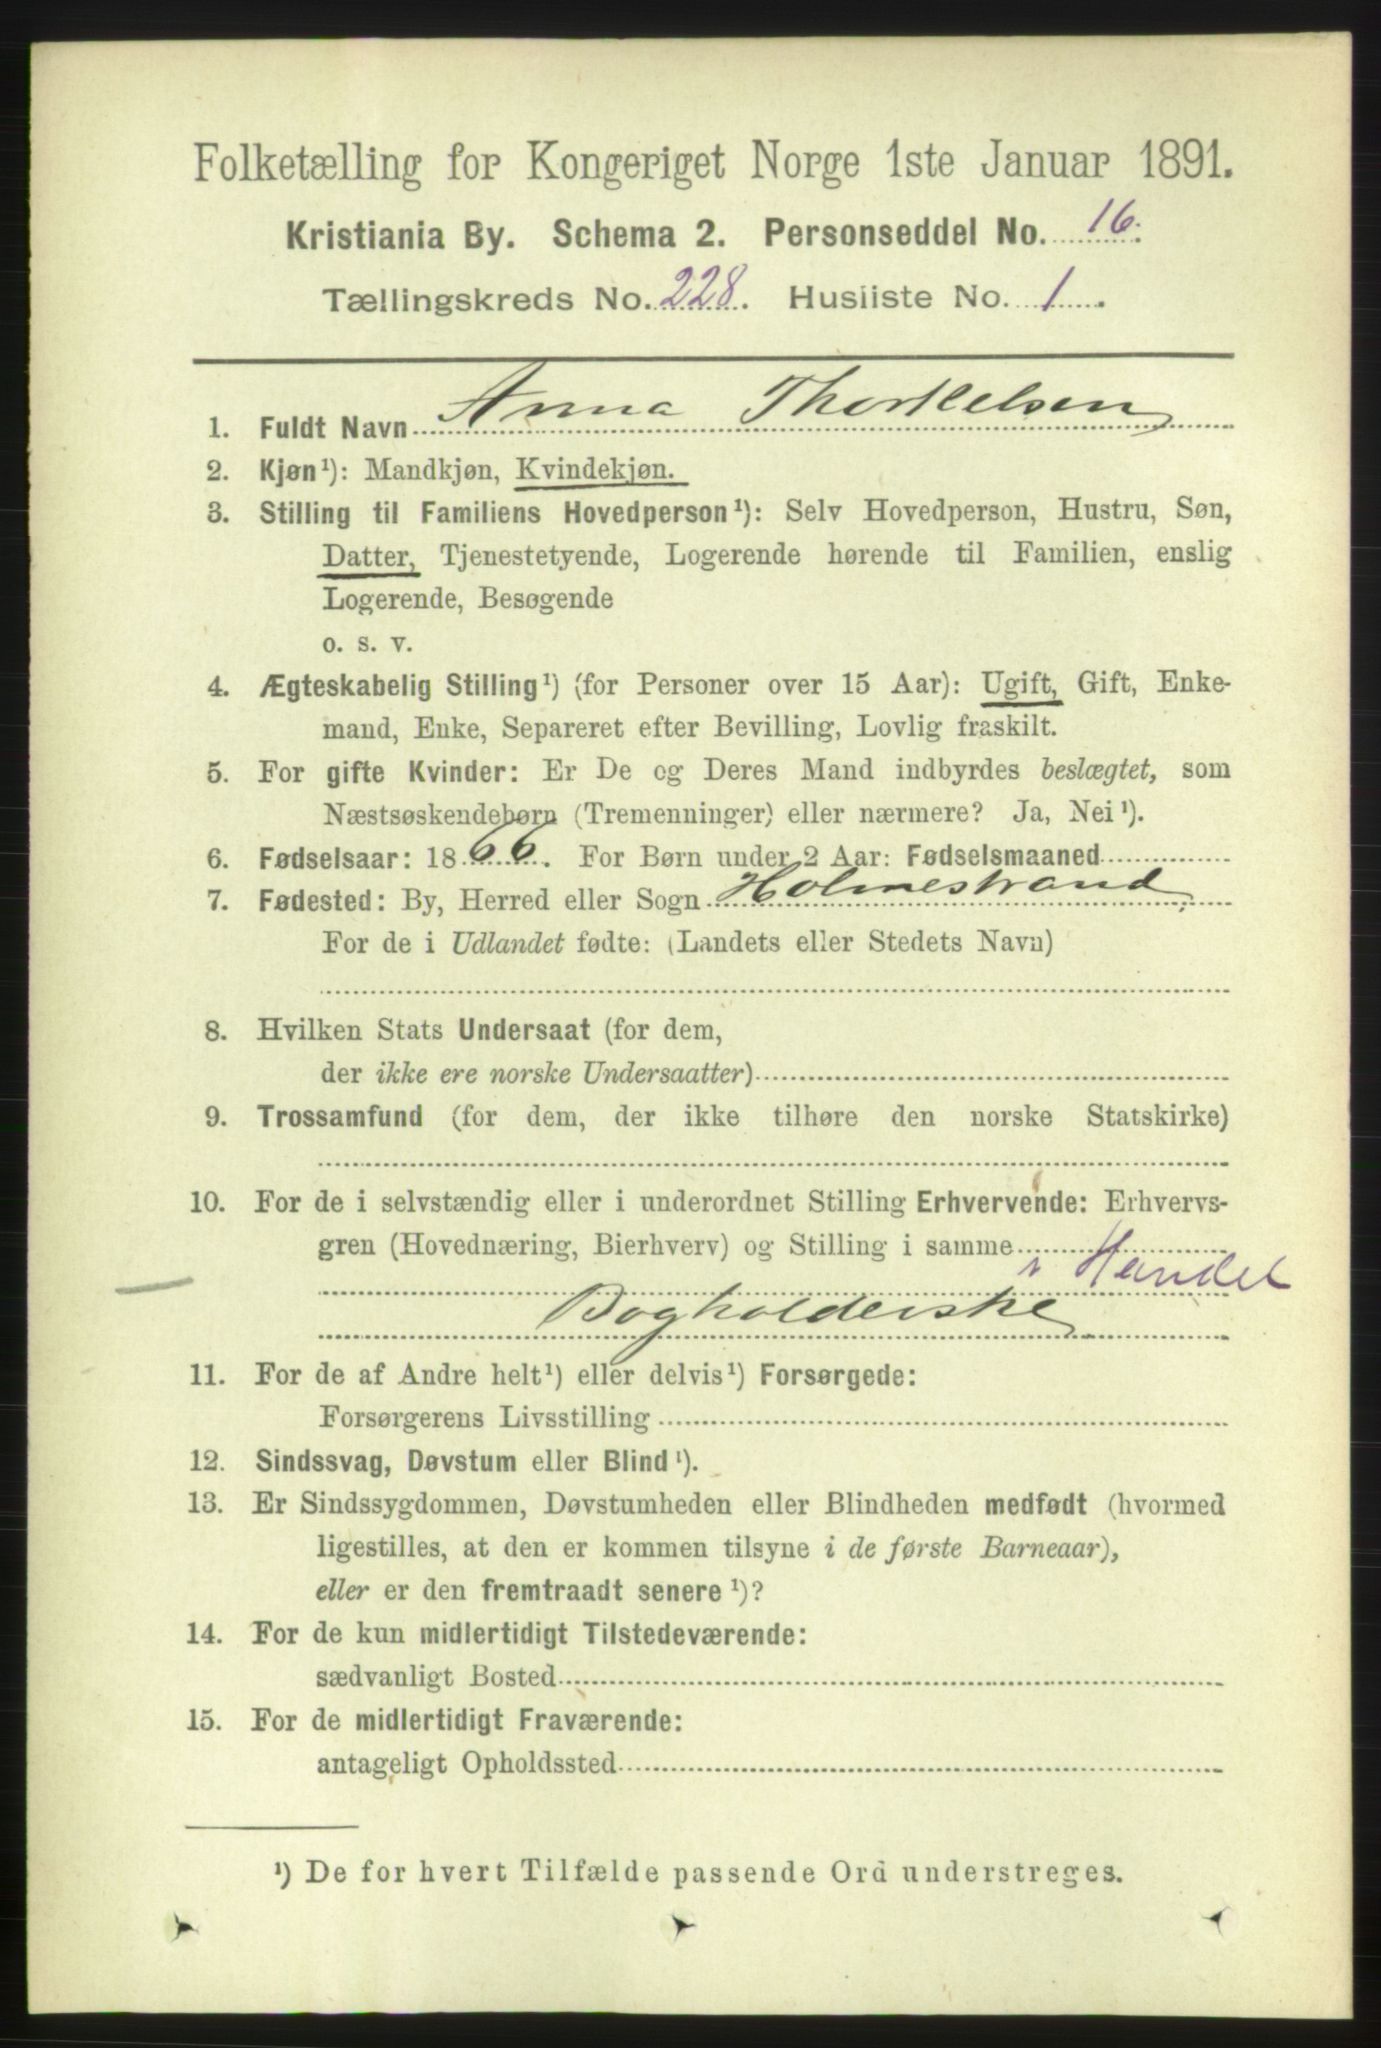 Folketælling for Kongeriget Norge 1ste Januar 1891.
Kristiania By. Schema 2. Personseddel No. 16.
Tællingskreds No. 228. Husliste No. 1.
1. Fuldt Navn Anna Thorkelsen
2. Kjøn¹): Mandkjøn, Kvindekjøn.
3. Stilling til Familiens Hovedperson¹): Selv Hovedperson, Hustru, Søn,
Datter, Tjenestetyende, Logerende hørende til Familien, enslig
Logerende, Besøgende
o. s. v.
4. Ægteskabelig Stilling¹) (for Personer over 15 Aar): Ugift, Gift, Enke-
mand, Enke, Separeret efter Bevilling, Lovlig fraskilt.
5. For gifte Kvinder: Er De og Deres Mand indbyrdes beslægtet, som
Næstsøskendebørn (Tremenninger) eller nærmere? Ja, Nei¹).
6. Fødselsaar: 1866. For Børn under 2 Aar: Fødselsmaaned
7. Fødested: By, Herred eller Sogn Holmestrand
For de i Udlandet fødte: (Landets eller Stedets Navn)
8. Hvilken Stats Undersaat (for dem,
der ikke ere norske Undersaatter)
9. Trossamfund (for dem, der ikke tilhøre den norske Statskirke)
10. For de i selvstændig eller i underordnet Stilling Erhvervende: Erhvervs-
gren (Hovednæring, Bierhverv) og Stilling i samme
i Handel
Bogholderske
11. For de af Andre helt¹) eller delvis¹) Forsørgede:
Forsørgerens Livsstilling
12. Sindssvag, Døvstum eller Blind¹).
13. Er Sindssygdommen, Døvstumheden eller Blindheden medfødt (hvormed
ligestilles, at den er kommen tilsyne i de første Barneaar),
eller er den fremtraadt senere¹)?
14. For de kun midlertidigt Tilstedeværende:
sædvanligt Bosted
15. For de midlertidigt Fraværende:
antageligt Opholdssted
¹) De for hvert Tilfælde passende Ord understreges.